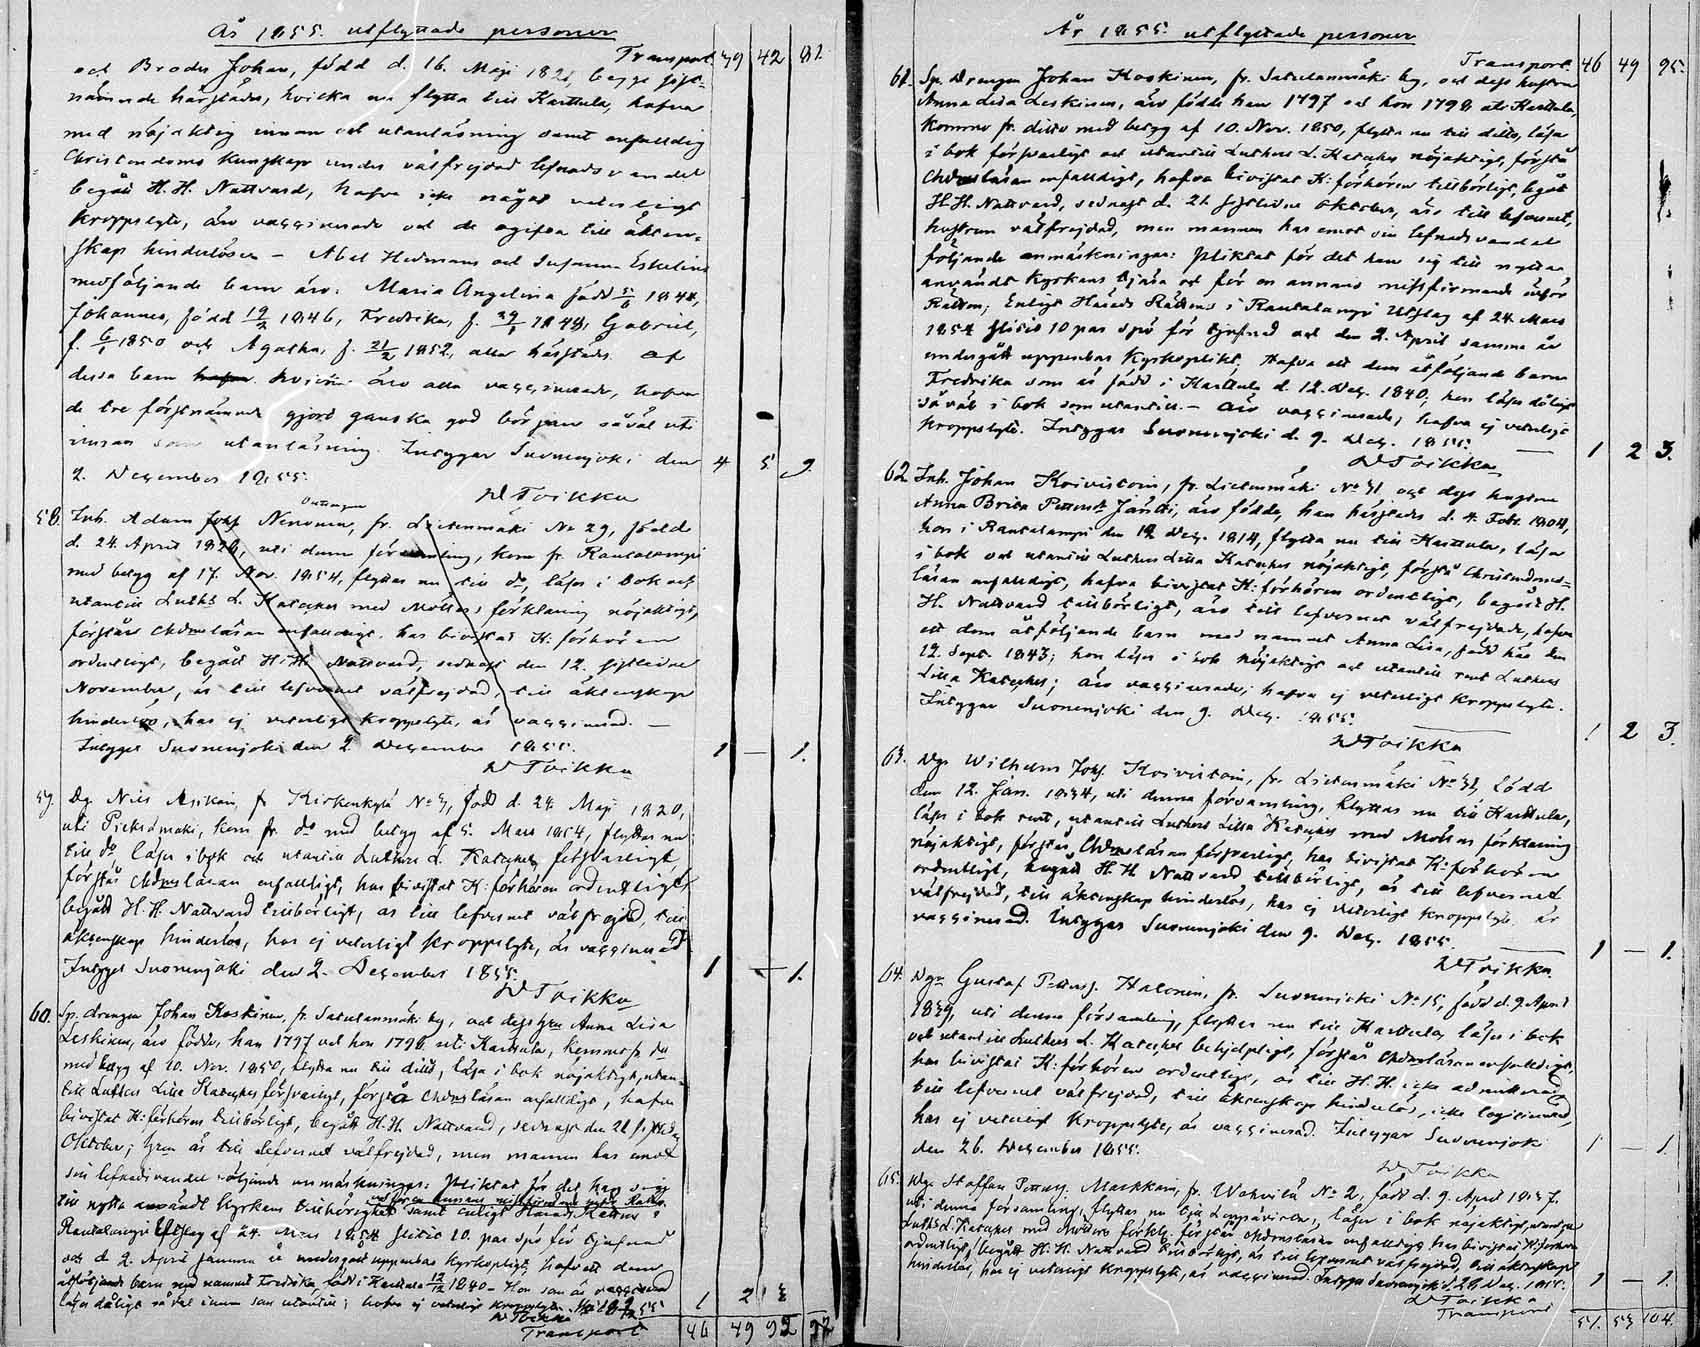 År 1855. utflyttade personer
Transport. 39 42 81.
och Broder Johan, född d. 16. Maji 1821, begge sist-
nämnde härstädes, hvilka nu flytta till Karttula, hafva
med nöjaktig innan och utanläsning samt enfalldig
Christendoms kunskap under välfrejdad lefnadsvandel
begått H. H. Nattvard, hafva icke något veterligt
kroppslyte, äro vaccinerade och de ogifta till äkten-
skap hinderlösa – Abel Hedmans och Susanna Eskelins
medföljande barn äro: Maria Angelina född 1844,
Johannes, född 19/2 1846, Fredrika, f. 29/1 1848, Gabriel,
f. 6/1 1850 och Agatha, f. 21/2 1852, alla härstädes. Af
dessa barn hvilka äro alla vaccinerade, hafva
de tre förstnämnde gjort ganska god början såväl uti
innan som utanläsning. Intygar Suonenjoki den
2. December 1855. 4 5. 9.
W Toikka
58. Inh. Adam Josf Ninonen, fr. Lietenmäki No 29, född
d. 24. April 1829, uti denna församling, kom fr. Rautalampi
med betyg af 17. Nov. 1854, flyttar nu till do, läser i bok och
utantill Luths L. Kateches med Möllers förklaring nöjaktigt,
förstår Chdmsläran enfalldigt, har bivistat K: förhören
ordentligt, begått H. H. Nattvard, sednast den 12. sistledne
November, är till lefvernet välfrejdad, till äktenskap
hinderlös, har ej veterligt kroppslyte, är vaccinerad. –
Intygar Suonenjoki den 2. December 1855. 1 — 1.
W Toikka
59. Dg. Nils Asikain, fr Kirkonkylä No 3, född d. 24. Maji 1820,
uti Pieksämäki, kom fr. do med betyg af 5. Mars 1854, flyttar nu
till do, läser i bok och utantill Luthers L. Kateches försvarligt,
förstår Chdmsläran enfalldigt, har bivistat K: förhören ordentligt,
begått H. H. Nattvard tillbörligt, är till lefvernet välfrejdad, till
äktenskap hinderlös, har ej veterligt kroppslyte, är vaccinerad.
Intygar Suonenjoki den 2. December 1855. 1 — 1.
W Toikka
60. Sp. drengen Johan Koskinen, fr. Satulanmäki by, och dess hru Anna Lisa
Leskinen, äro födda, han 1797 och hon 1798 uti Karttula, kommo fr do
med betyg af 10. Nov. 1850, flytta nu till ditto, läsa i bok nöjaktigt, utan-
till Luthers Lilla Kateches försvarligt, förstå Chdmsläran enfalldigt, hafva
bivistat K: förhören tillbörligt, begått H. H. Nattvard, sednast den 21 sistl.
Oktober; hrun är till lefvernet välfrejdad, men mannen har emot
sin lefnadsvandel följande anmärkningar: Pliktat för det han sig
till nytta användt kyrkans tillhörighet samt enligt Härads Rättens i
Rautalampi Utslag af 24. Mars 1854 slitit 10. par spö för tjufnad
och d 2. April samma år undergått uppenbar kyrkoplikt, hafva ett dem
åtföljande barn med namnet Fredrika, född i Karttula 12/12 1840 – Hon som är vaccinerad
läser dåligt såväl innan som utantill; hafva ej veterligt kroppslyte. 1 2 3
W Toikka
Transport 46 49 92 92
År 1855. utflyttade personer
Transport. 46 49 95.
61. Sp. Drengen Johan Koskinen, fr. Satulanmäki by, och dess hustru
Anna Lisa Leskinen, äro födde han 1797 och hon 1798 uti Karttula,
kommo fr. ditto med betyg af 10. Nov. 1850, flytta nu till ditto, läsa
i bok försvarligt och utantill Luthers L. Kateches nöjaktigt, förstå
Chdmsläran enfalldigt, hafva bivistat K: förhören tillbörligt, begått
H. H. Nattvard, sednast d. 21 sistledne Oktober, äro till lefvernet,
hustrun välfrejdad, men mannen har emot sin lefnadsvandel
följande anmärkningar: Pliktat för det han sig till nytta
användt kyrkans tjära och för en annans missfirmande inför
Rätten; Enligt Härads Rättens i Rautalampi Utslag af 24. Mars
1854 slitit 10 par spö för tjufnad och den 2. April samma år
undergått uppenbar Kyrkoplikt, Hafva ett dem åtföljande barn
Fredrika som är född i Karttula d. 12. Dec. 1840, hon läser dåligt
såväl i bok som utantill. – äro vaccinerade, hafva ej veterligt
kroppslyte. Intygar Suonenjoki d. 9. Dec. 1855. 1 2 3.
W Toikka
62. Inh. Johan Koivistoin, fr. Lietenmäki No 31, och dess hustru
Anna Brita Pettersdr Jäntti, äro födda, han härstädes d. 4. Febr. 1804,
hon i Rautalampi den 12 Dec. 1814, flytta nu till Karttula, läsa
i bok och utantill Luthers Lilla Kateches nöjaktigt, förstå Christendoms-
läran enfalldigt, hafva bivistat K: förhören ordentligt, begått H.
H. Nattvard tillbörligt, äro till lefvernet välfrejdade, hafva
ett dem åtföljande barn med namnet Anna Lisa, född här den
12. Sept. 1843; hon läser i bok nöjaktigt och utantill rent Luthers
Lilla Kateches; äro vaccinerade, hafva ej veterligt kroppslyte.
Intygar Suonenjoki den 9. Dec. 1855. 1 2 3.
W Toikka
63. Dgr Wilhelm Josf. Koivistoin, fr. Lietenmäki No 31, född
den 12. Jan. 1834, uti denna församling, flyttar nu till Karttula,
läser i bok rent, utantill Luthers Lilla Kateches med Möllers förklaring
nöjaktigt, förstår Chdmsläran försvarligt, har bivistat K: förhören
ordentligt, begått H. H. Nattvard tillbörligt, är till lefvernet
välfrejdad, till äktenskap hinderlös, har ej veterligt kroppslyte, är
vaccinerad. Intygar Suonenjoki den 9. Dec. 1855. 1 — 1.
W Toikka.
64. Dgn Gustaf Pettersf. Halonen, fr. Suonenjoki No 15, född d. 9 April
1839, uti denna församling, flyttar nu till Karttula, läser i bok
och utantill Luthers L. Kateches behjelpligt, förstår Chdmsläran enfalldigt,
har bivistat K: förhören ordentligt, är till H. H. icke admitterad,
till lefvernet välfrejdad, till äktenskap hinderlös, icke legitimerad,
har ej veterligt kroppslyte, är vaccinerad. Intygar Suonenjoki
den 26. December 1855. 1 — 1.
W Toikka
65. Dgr. Staffan Pettersf. Markkain, fr. Wehvilä No 2, född d. 9. April 1837.
uti denna församling, flyttar nu till Leppävirta, läser i bok nöjaktigt, utantill
Luths L. Kateches med Möllers förklg. förstår Chdmsläran enfalldigt, har bivistat K: förhören
ordentligt, begått H. H. Nattvard tillbörligt, är till lefvernet välfrejdad, till äktenskap
hinderlös, har ej veterligt kroppslyte, är vaccinerad. Intygar Suonenjoki d. 29 Dec. 1855. 1 — 1.
W Toikka
Transport 51. 53 104.